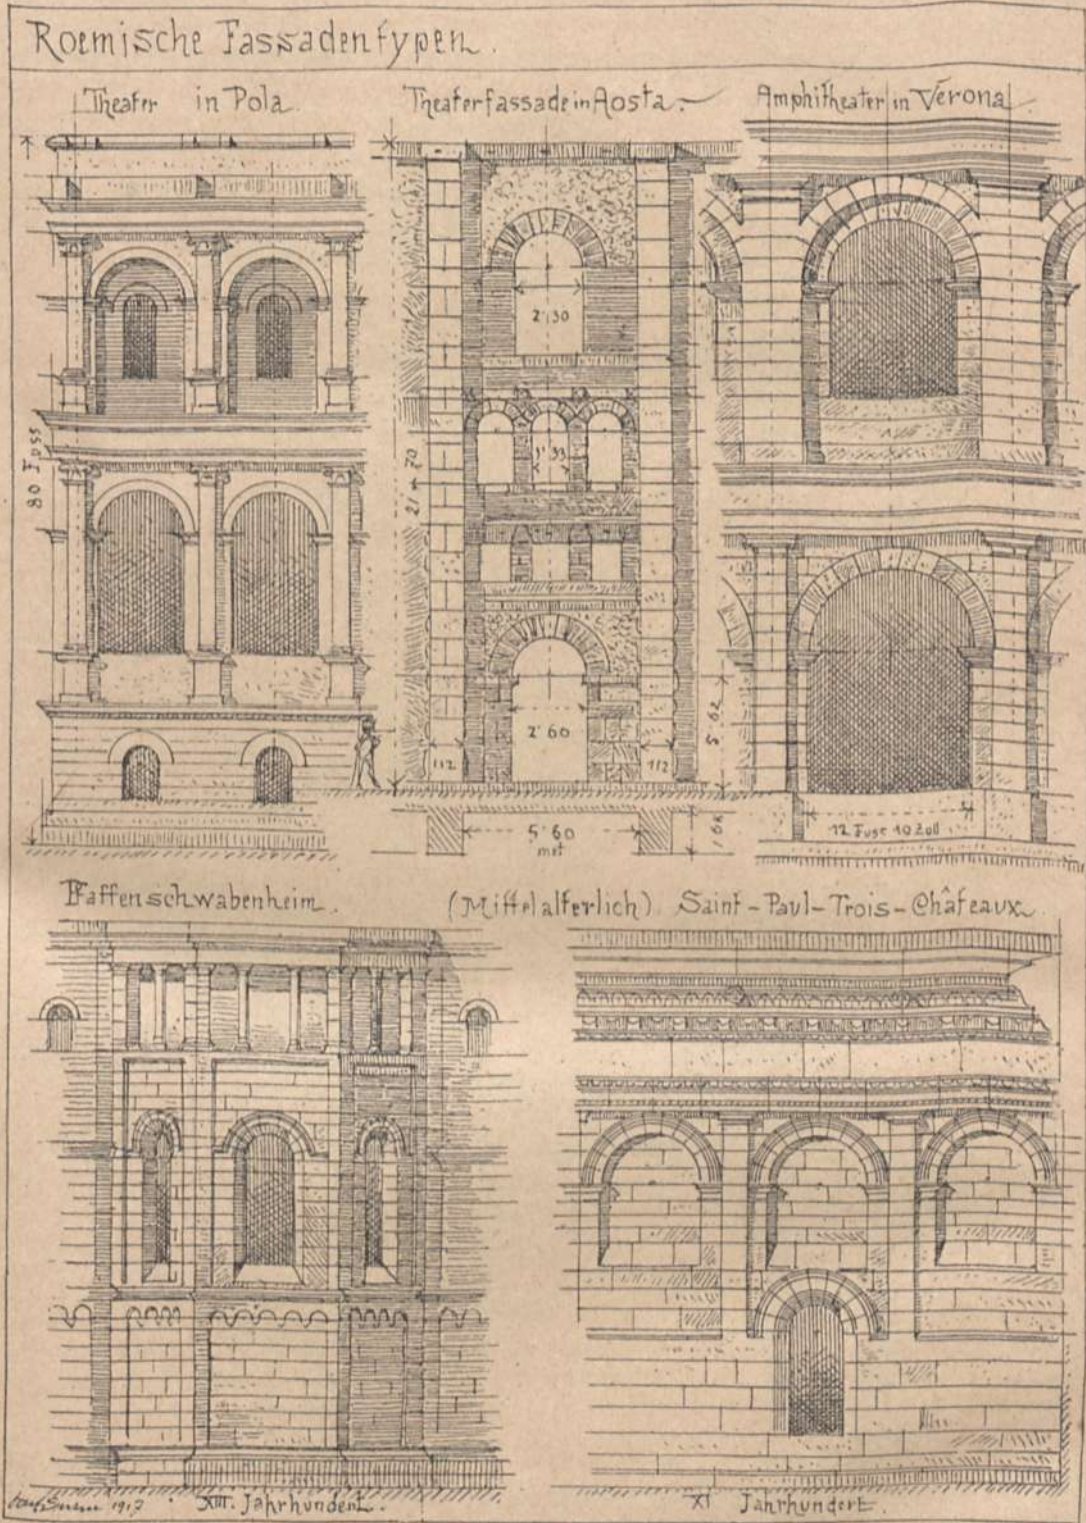 Roemische Fassadentypen.
Theater in Pola.
Theaterfassade in Aosta.
Amphitheater in Verona
80 Fuss
2'30
1'33
21 m 70
2'60
112
112
5'62
5'60
met
12 Fuss 10 Zoll
Pfaffenschwabenheim.
(Mittelalterlich) Saint-Paul-Trois-Châteaux
1917
XIII. Jahrhundert.
XI Jahrhundert.